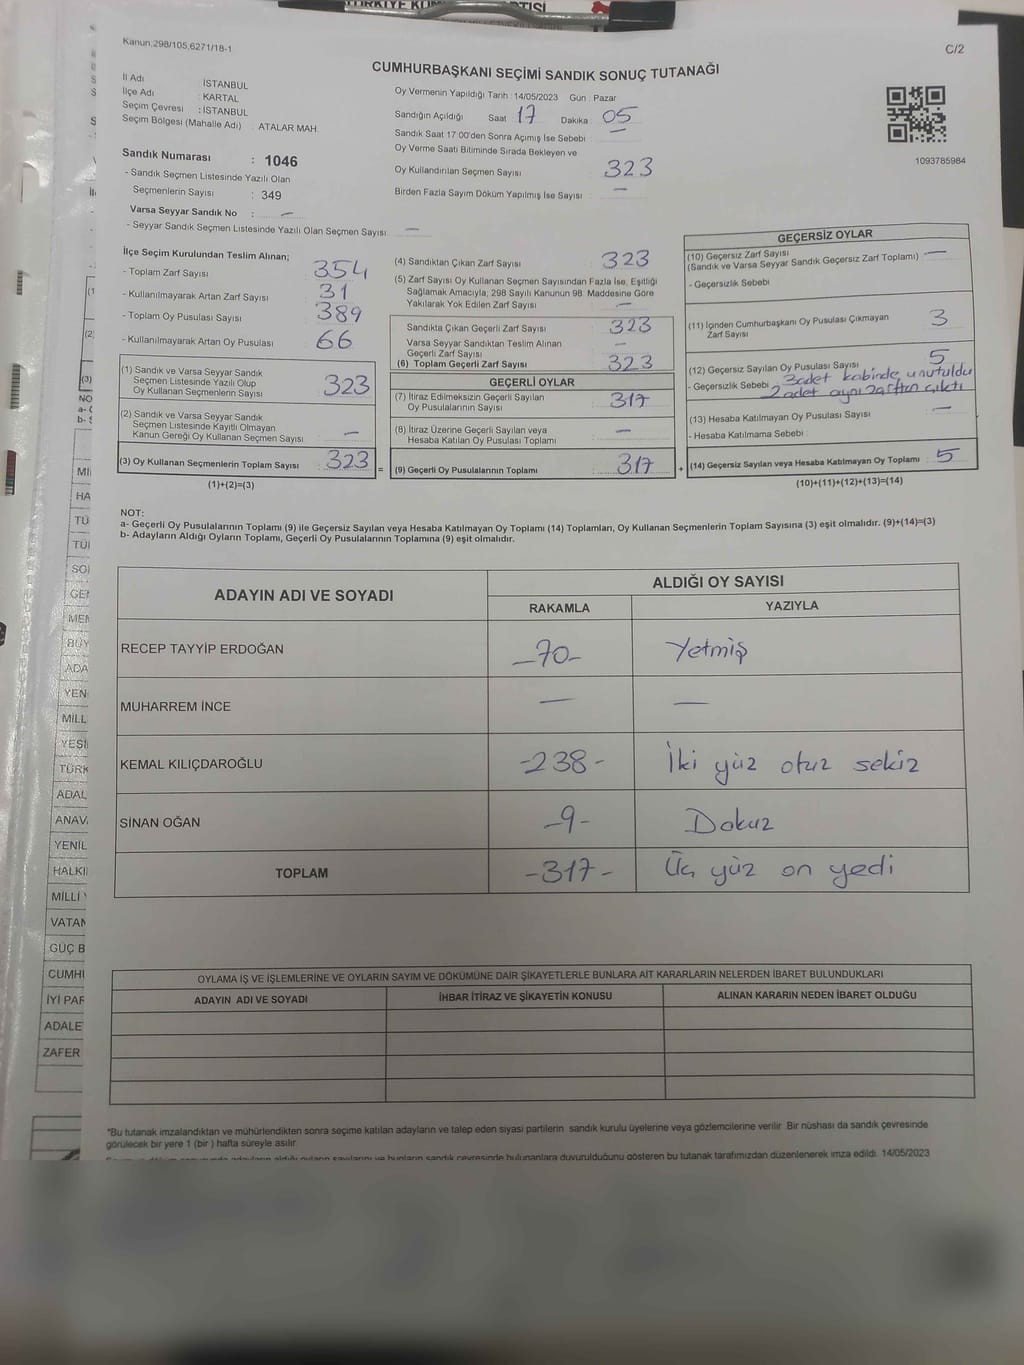 Kanun.298/105,6271/18-1
C/2
CUMHURBAŞKANI SEÇİMİ SANDIK SONUÇ TUTANAĞI
İl Adı : İSTANBUL
İlçe Adı : KARTAL
Seçim Çevresi : İSTANBUL
Seçim Bölgesi (Mahalle Adı) : ATALAR MAH.
Oy Vermenin Yapıldığı Tarih : 14/05/2023 Gün : Pazar
Sandığın Açıldığı Saat 17 Dakika 05
Sandık Saat 17:00'den Sonra Açımış İse Sebebi : —
Oy Verme Saati Bitiminde Sırada Bekleyen ve
Oy Kullandırılan Seçmen Sayısı : 323
Birden Fazla Sayım Döküm Yapılmış İse Sayısı : —
1093785984
Sandık Numarası : 1046
- Sandık Seçmen Listesinde Yazılı Olan
Seçmenlerin Sayısı : 349
Varsa Seyyar Sandık No : —
- Seyyar Sandık Seçmen Listesinde Yazılı Olan Seçmen Sayısı : —
İlçe Seçim Kurulundan Teslim Alınan;
- Toplam Zarf Sayısı : 354
- Kullanılmayarak Artan Zarf Sayısı : 31
- Toplam Oy Pusulası Sayısı : 389
- Kullanılmayarak Artan Oy Pusulası : 66
(1) Sandık ve Varsa Seyyar Sandık
Seçmen Listesinde Yazılı Olup
Oy Kullanan Seçmenlerin Sayısı : 323
(2) Sandık ve Varsa Seyyar Sandık
Seçmen Listesinde Kayıtlı Olmayan
Kanun Gereği Oy Kullanan Seçmen Sayısı : —
(3) Oy Kullanan Seçmenlerin Toplam Sayısı : 323 =
(1)+(2)=(3)
(4) Sandıktan Çıkan Zarf Sayısı : 323
(5) Zarf Sayısı Oy Kullanan Seçmen Sayısından Fazla İse, Eşitliği
Sağlamak Amacıyla; 298 Sayılı Kanunun 98. Maddesine Göre
Yakılarak Yok Edilen Zarf Sayısı : —
Sandıkta Çıkan Geçerli Zarf Sayısı : 323
Varsa Seyyar Sandıktan Teslim Alınan
Geçerli Zarf Sayısı : —
(6) Toplam Geçerli Zarf Sayısı : 323
GEÇERLİ OYLAR
(7) İtiraz Edilmeksizin Geçerli Sayılan
Oy Pusulasının Sayısı : 317
(8) İtiraz Üzerine Geçerli Sayılan veya
Hesaba Katılan Oy Pusulası Toplamı : —
(9) Geçerli Oy Pusulalarının Toplamı : 317 +
GEÇERSİZ OYLAR
(10) Geçersiz Zarf Sayısı : —
(Sandık ve Varsa Seyyar Sandık Geçersiz Zarf Toplamı)
- Geçersizlik Sebebi :
(11) İçinden Cumhurbaşkanı Oy Pusulası Çıkmayan
Zarf Sayısı : 3
(12) Geçersiz Sayılan Oy Pusulası Sayısı : 5
- Geçersizlik Sebebi : 3 adet kabinde unutuldu
2 adet aynı zarftan çıktı
(13) Hesaba Katılmayan Oy Pusulası Sayısı : —
- Hesaba Katılmama Sebebi :
(14) Geçersiz Sayılan veya Hesaba Katılmayan Oy Toplamı : 5
(10)+(11)+(12)+(13)=(14)
NOT:
a- Geçerli Oy Pusulalarının Toplamı (9) ile Geçersiz Sayılan veya Hesaba Katılmayan Oy Toplamı (14) Toplamları, Oy Kullanan Seçmenlerin Toplam Sayısına (3) eşit olmalıdır. (9)+(14)=(3)
b- Adayların Aldığı Oyların Toplamı, Geçerli Oy Pusulalarının Toplamına (9) eşit olmalıdır.
ADAYIN ADI VE SOYADI
ALDIĞI OY SAYISI
RAKAMLA YAZIYLA
RECEP TAYYİP ERDOĞAN -70- Yetmiş
MUHARREM İNCE — —
KEMAL KILIÇDAROĞLU -238- İki yüz otuz sekiz
SİNAN OĞAN -9- Dokuz
TOPLAM -317- Üç yüz on yedi
OYLAMA İŞ VE İŞLEMLERİNE VE OYLARIN SAYIM VE DÖKÜMÜNE DAİR ŞİKAYETLERLE BUNLARA AİT KARARLARIN NELERDEN İBARET BULUNDUKLARI
ADAYIN ADI VE SOYADI İHBAR İTİRAZ VE ŞİKAYETİN KONUSU ALINAN KARARIN NEDEN İBARET OLDUĞU
*Bu tutanak imzalandıktan ve mühürlendikten sonra seçime katılan adayların ve talep eden siyasi partilerin sandık kurulu üyelerine veya gözlemcilerine verilir. Bir nüshası da sandık çevresinde
görülecek bir yere 1 (bir) hafta süreyle asılır.
bu tutanak tarafımızdan düzenlenerek imza edildi. 14/05/2023